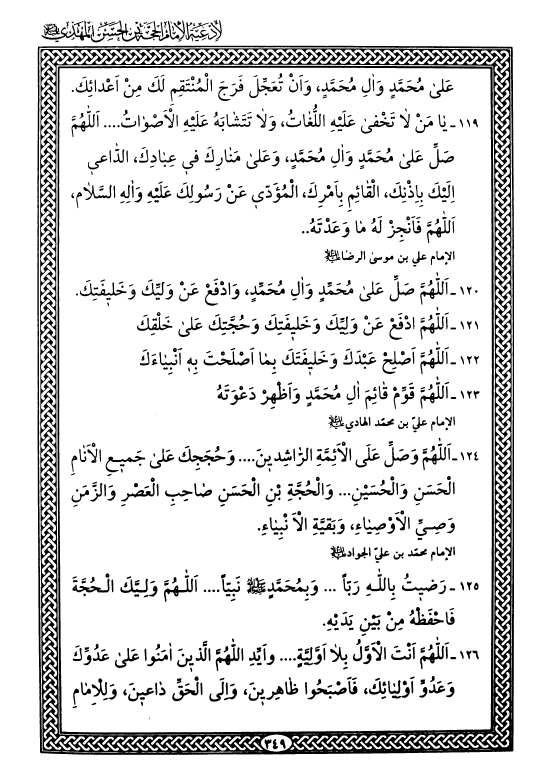 لأدعية الإمام الحجة بن الحسن المهدي ﷺ
عَلىٰ مُحَمَّدٍ وَاٰلِ مُحَمَّدٍ، وَاَنْ تُعَجِّلَ فَرَجَ الْمُنْتَقِمِ لَكَ مِنْ اَعْدائِكَ.
١١٩ـ يٰا مَنْ لاٰ تَخْفىٰ عَلَيْهِ اللُّغاتُ، وَلاٰ تَتَشابَهُ عَلَيْهِ الْاَصْوٰاتُ.... اَللّٰهُمَّ
صَلِّ عَلىٰ مُحَمَّدٍ وَاٰلِ مُحَمَّدٍ، وَعَلىٰ مَنٰارِكَ في عِبٰادِكَ، الدّٰاعي
اِلَيْكَ بِاِذْنِكَ، الْقٰائِمِ بِاَمْرِكَ، الْمُؤَدّي عَنْ رَسُولِكَ عَلَيْهِ وَاٰلِهِ السَّلاٰم،
اَللّٰهُمَّ فَاَنْجِزْ لَهُ مٰا وَعَدْتَهُ..
الإمام علي بن موسىٰ الرضا ﷺ
١٢٠ـ اَللّٰهُمَّ صَلِّ عَلىٰ مُحَمَّدٍ وَاٰلِ مُحَمَّدٍ، وَادْفَعْ عَنْ وَلِيِّكَ وَخَليفَتِكَ.
١٢١ـ اَللّٰهُمَّ ادْفَعْ عَنْ وَلِيِّكَ وَخَليفَتِكَ وَحُجَّتِكَ عَلىٰ خَلْقِكَ
١٢٢ـ اَللّٰهُمَّ اَصْلِحْ عَبْدَكَ وَخَليفَتَكَ بِمٰا اَصْلَحْتَ بِهِ اَنْبِيٰاءَكَ
١٢٣ـ اَللّٰهُمَّ قَوِّمْ قٰائِمَ اٰلِ مُحَمَّدٍ وَاَظْهِرْ دَعْوَتَهُ
الإمام عليّ بن محمّد الهادي ﷺ
١٢٤ـ اَللّٰهُمَّ وَصَلِّ عَلَى الْاَئِمَّةِ الرّٰاشِدينَ.... وَحُجَجِكَ عَلىٰ جَميعِ الْاَنٰامِ
الْحَسَنِ وَالْحُسَيْنِ... وَالْحُجَّةِ بْنِ الْحَسَنِ صٰاحِبِ الْعَصْرِ وَالزَّمَنِ
وَصِيِّ الْاَوْصِيٰاءِ، وَبَقيَّةِ الْاَنْبِيٰاءِ.
الإمام محمّد بن عليّ الجواد ﷺ
١٢٥ـ رَضيتُ بِاللّٰهِ رَبّاً ... وَبِمُحَمَّدٍ ﷺ نَبِيّاً.... اَللّٰهُمَّ وَلِيَّكَ الْحُجَّةَ
فَاحْفَظْهُ مِنْ بَيْنِ يَدَيْهِ.
١٢٦ـ اَللّٰهُمَّ اَنْتَ الْاَوَّلُ بِلاٰ اَوَّلِيَّةٍ.... وَاَيِّدِ اللّٰهُمَّ الَّذينَ اٰمَنُوا عَلىٰ عَدُوِّكَ
وَعَدُوِّ اَوْلِيٰائِكَ، فَاَصْبَحُوا ظٰاهِرينَ، وَاِلَى الْحَقِّ دٰاعينَ، وَلِلْاِمٰامِ
٣٤٩